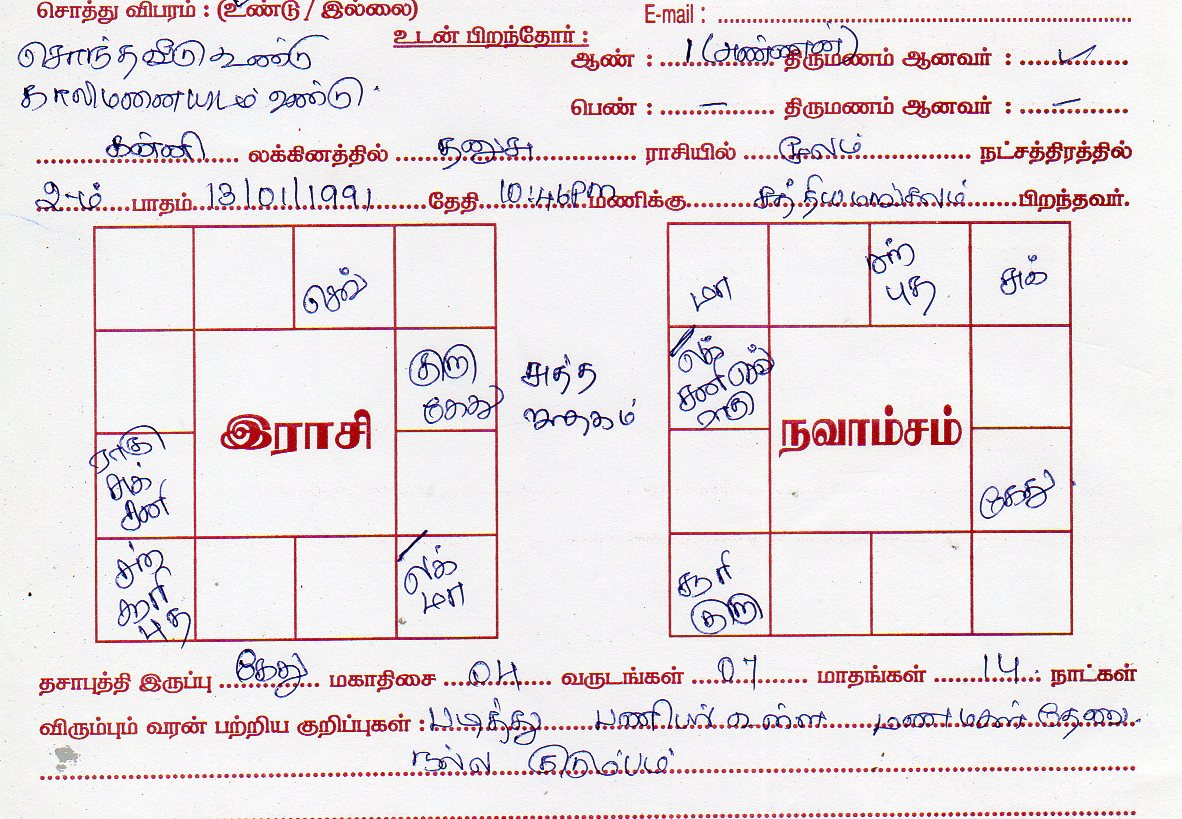 சொத்து விபரம் : (உண்டு / இல்லை)
E-mail : ..........
சொந்த வீடு உண்டு
காலிமனையிடம் உண்டு.
உடன் பிறந்தோர் :
ஆண் : 1 (அண்ணன்) திருமணம் ஆனவர் : ✓
பெண் : – திருமணம் ஆனவர் : –
கன்னி லக்கினத்தில் தனுசு ராசியில் மூலம் நட்சத்திரத்தில்
2-ம் பாதம் 13/01/1991 தேதி 10:46PM மணிக்கு சத்தியமங்கலம் பிறந்தவர்.
செவ்
குரு
கேது
ராகு
சுக்
சனி
சந்
சூரி
புத
லக்
மா
இராசி
சுத்த
ஜாதகம்
மா
சந்
புத
சுக்
லக்
சனி செவ்
ராகு
கேது
சூரி
குரு
நவாம்சம்
தசாபுத்தி இருப்பு கேது மகாதிசை 04 வருடங்கள் 07 மாதங்கள் 14 நாட்கள்
விரும்பும் வரன் பற்றிய குறிப்புகள் : படித்து பணியில் உள்ள மணமகன் தேவை.
நல்ல குடும்பம்